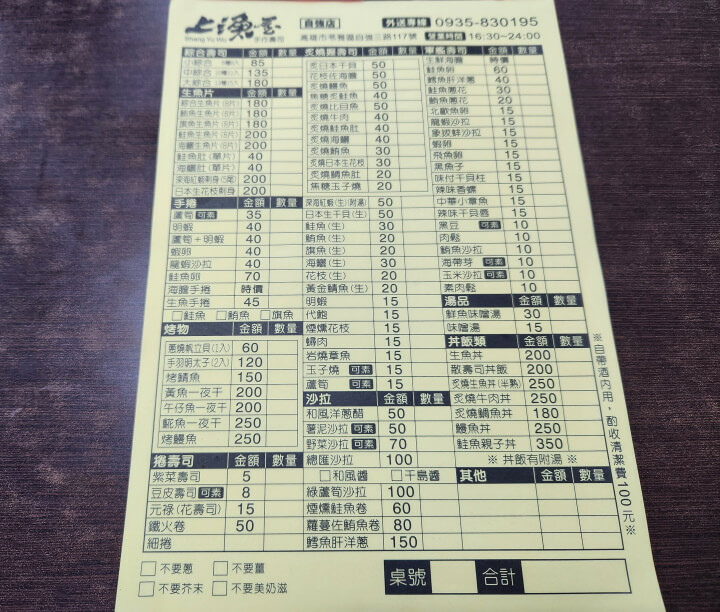 自強店
外送專線 0935-830195
手作壽司
高雄市苓雅區自強三路117號 營業時間 16:30~24:00
綜合壽司 金額 數量
小綜合 85
中綜合 135
大綜合 180
生魚片 金額 數量
綜合生魚片(8片) 180
鮪魚生魚片(8片) 180
旗魚生魚片(8片) 180
鮭魚生魚片(8片) 200
海鱺生魚片(8片) 200
鮭魚肚(單片) 40
海鱺肚(單片) 40
深海紅蝦刺身(5尾) 200
日本生花枝刺身 200
手捲 金額 數量
蘆筍 可素 35
明蝦 40
蘆筍+明蝦 40
蝦卵 40
龍蝦沙拉 40
鮭魚卵 70
海膽手捲 時價
生魚手捲 45
□鮭魚 □鮪魚 □旗魚
烤物 金額 數量
蔥燒帆立貝(1入) 60
手羽明太子(2入) 120
烤鯖魚 150
黃魚一夜干 200
午仔魚一夜干 200
魠魚一夜干 250
烤鰻魚 250
捲壽司 金額 數量
紫菜壽司 5
豆皮壽司 可素 8
元祿(花壽司) 15
鐵火卷 50
細捲
炙燒握壽司 金額 數量
炙日本干貝 50
花枝佐海膽 50
炙燒鰻魚 50
焦糖炙鮭魚 40
炙燒比目魚 50
炙燒牛肉 40
炙燒鮭魚肚 40
炙燒海鱺 40
炙燒鮪魚 30
炙燒日本生花枝 30
炙燒鯛魚肚 20
焦糖玉子燒 20
深海紅蝦(生)(附湯) 50
日本生干貝(生) 50
鮭魚(生) 30
鮪魚(生) 20
旗魚(生) 20
海鱺(生) 30
花枝(生) 20
黃金鯖魚(生) 20
明蝦 15
代鮑 15
煙燻花枝 15
蟳肉 15
岩燒章魚 15
玉子燒 可素 15
蘆筍 可素 15
沙拉 金額 數量
和風洋蔥醋 50
薯泥沙拉 可素 50
野菜沙拉 可素 70
總匯沙拉 100
□和風醬 □千島醬
綠蘆筍沙拉 100
煙燻鮭魚卷 60
蘿蔓佐鮪魚卷 80
鱈魚肝洋蔥 150
軍艦壽司 金額 數量
生鮮海膽 時價
鮭魚卵 60
鱈魚肝洋蔥 40
鮭魚蔥花 30
鮪魚蔥花 20
北歐魚卵 15
龍蝦沙拉 15
象拔蚌沙拉 15
蝦卵 15
飛魚卵 15
黑魚子 15
味付干貝柱 15
辣味香螺 15
中華小章魚 15
辣味干貝唇 15
黑豆 可素 10
肉鬆 10
鮪魚沙拉 10
海帶芽 可素 10
玉米沙拉 可素 10
素肉鬆 10
湯品 金額 數量
鮮魚味噌湯 30
味噌湯 15
丼飯類 金額 數量
生魚丼 200
散壽司丼飯 200
炙燒生魚丼(半熟) 250
炙燒牛肉丼 250
炙燒鯛魚丼 180
鰻魚丼 250
鮭魚親子丼 350
※ 丼飯有附湯 ※
其他 金額 數量
※自帶酒內用,酌收清潔費100元※
□不要蔥 □不要薑
□不要芥末 □不要美奶滋
桌號 合計